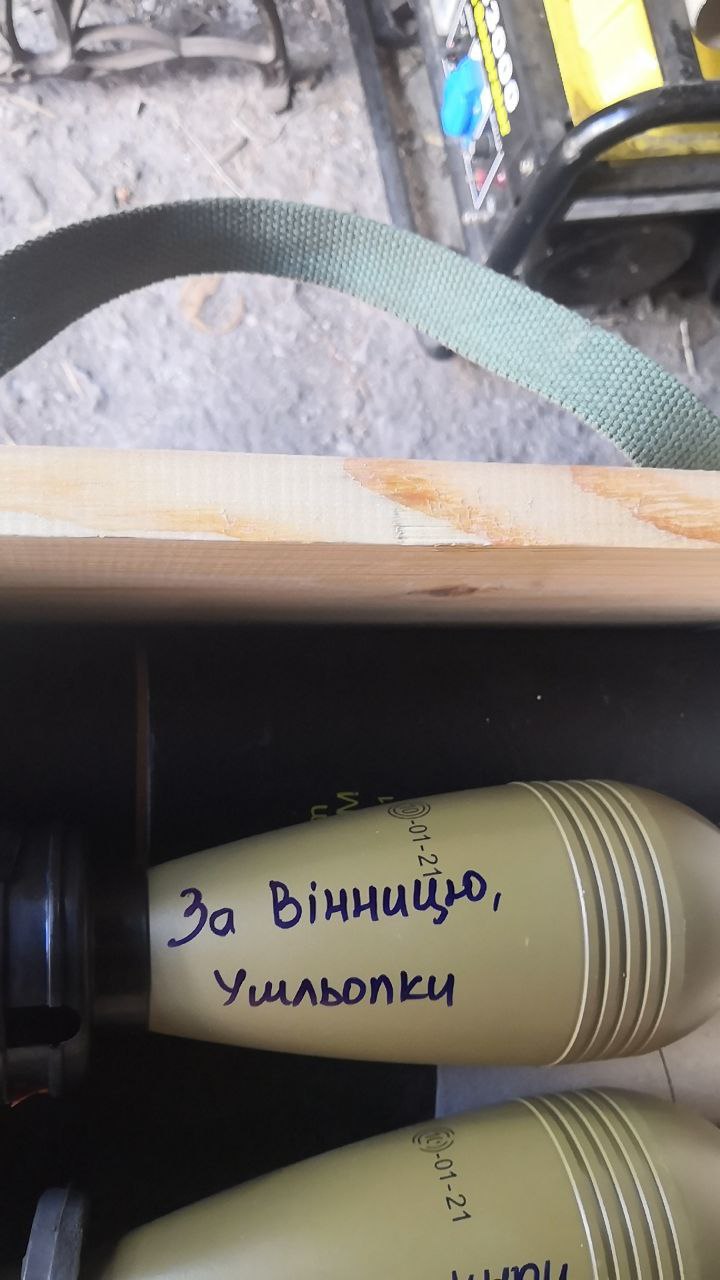 3000
-01-21
За Вінницю,
Ушльопки
-01-21